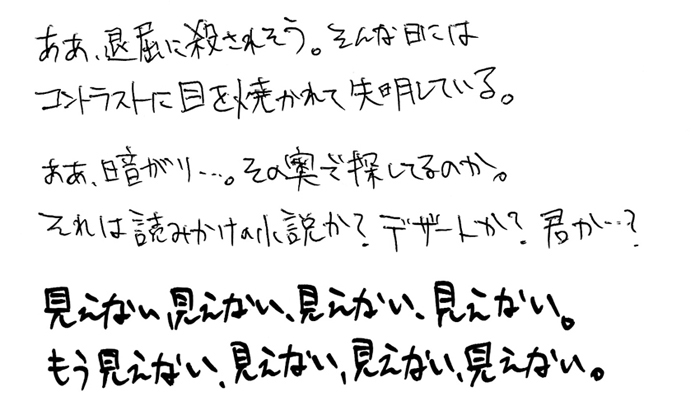 ああ、退屈に殺されそう。そんな日には
コントラストに目を焼かれて失明している。
ああ、暗がり…。その奥で探してるのか。
それは読みかけの小説か?デザートか?君か…?
見えない、見えない、見えない、見えない。
もう見えない、見えない、見えない、見えない。